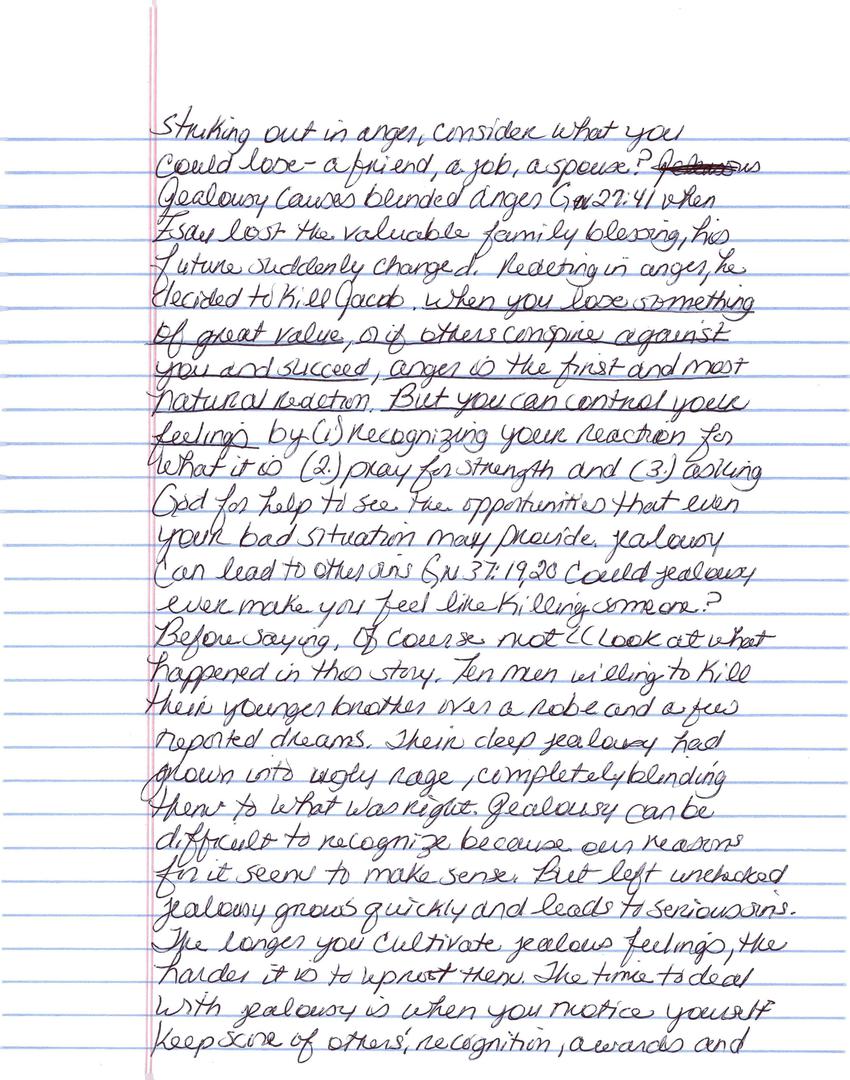 Striking out in anger, consider what you
could lose - a friend, a job, a spouse?
Jealousy causes blinded anger Gn 27:41 when
Esau lost the valuable family blessing, his
future suddenly changed. Reacting in anger, he
decided to Kill Jacob. When you lose something
of great value, or if others conspire against
you and succeed, anger is the first and most
natural reaction. But you can control your
feelings by (1) recognizing your reaction for
what it is (2.) pray for strength and (3.) asking
God for help to see the opportunities that even
your bad situation may provide. jealousy
can lead to other sins Gn 37:19,20 Could jealousy
ever make you feel like Killing someone?
Before saying, Of course not look at what
happened in this story. Ten men willing to Kill
their younger brother over a robe and a few
reported dreams. Their deep jealousy had
grown into ugly rage, completely blinding
them to what was right. Jealousy can be
difficult to recognize because our reasons
for it seem to make sense. But left unchecked
jealousy grows quickly and leads to serious sins.
The longer you cultivate jealous feelings, the
harder it is to uproot them. The time to deal
with jealousy is when you notice yourself
Keep score of others', recognition, awards and